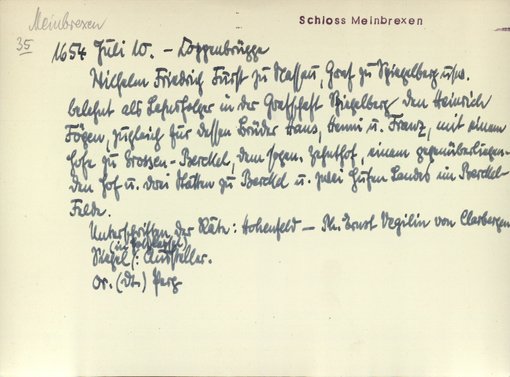 Meinbrexen
Schloss Meinbrexen
35
1654 Juli 10. – Coppenbrügge
Wilhelm Friedrich Fürst zu Nassau, Graf zu Spiegelberg usw.
belehnt als Lehnsfolger in der Grafschaft Spiegelberg den Heinrich
Fögen, zugleich für dessen Brüder Hans, Henni u. Franz, mit einem
Hofe zu Grossen-Berckel, dem sogen. Zehnthof, einem gegenüberliegen-
den Hof u. drei Stätten zu Berckel u. zwei Hufen Landes im Berckel-
Felde.
Unterschriften der Räte: Hohenfeld – Ernst Vegilin von Claerbergen
(in Holzkapsel)
Siegel: Aussteller.
Or. (dt.) Perg